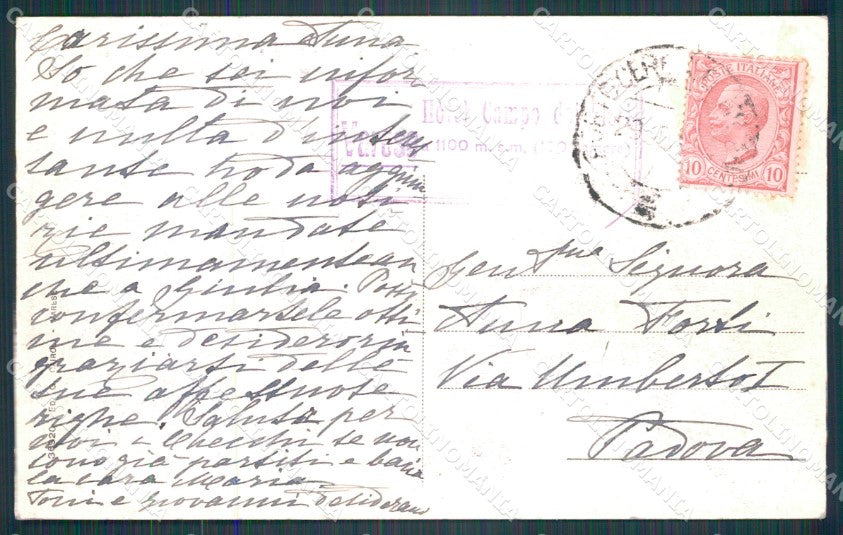 Carissima Anna
So che sei infor
mata di noi
e nulla d'interes
sante ho da aggiun
gere alle noti
zie mandate
ultimamente an
che a Giulia. Posso
confermartele otti
me e desidero rin
graziarti delle
tue affettuose
righe. Saluta per
noi i Checchi se non
sono già partiti e bacia
la cara Maria
Toni e Giovanni desiderano
Hotel Campo d
Varese
1100 m. s. m.
POSTE ITALIANE
10 CENTESIMI 10
Gen.ma Signora
Anna Forti
Via Umberto I
Padova
CARTOLINOMANIA